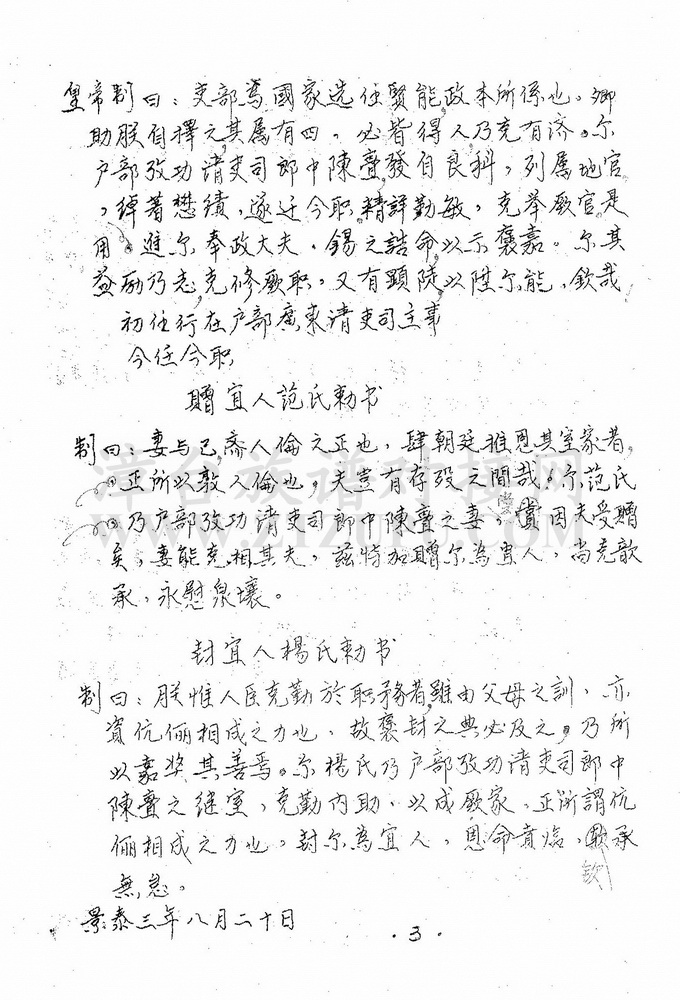 皇帝制曰：吏部為國家选任賢能，政本所係也。卿
助朕自擇之，其属有四，必皆得人乃克有济。尔
户部攷功清吏司郎中陳亹發自良科，列属地官
，绰著懋績，遂迁今职，精詳勤敏，克举厥官，是
用進尔奉政大夫，錫之誥命以示褒嘉。尔其
益励乃志，克修厥职，又有顕陟以陞尔能，欽哉
初任行在户部廣東清吏司主事
今任今职
贈宜人范氏勅书
制曰：妻与己斎人倫之正也，肆朝廷推恩其室家者，
正所以敦人倫也，夫豈有存歿之間哉？尔范氏
乃户部攷功清吏司郎中陳亹之妻，嘗因夫受贈
矣；妻能克相其夫，兹特加贈尔為宜人，尚克歆
承，永慰泉壤。
封宜人楊氏勅书
制曰：朕惟人臣克勤於职務者，雖由父母之訓，亦
資伉俪相成之力也，故褒封之典必及之，乃所
以嘉奖其善焉。尔楊氏乃户部攷功清吏司郎中
陳亹之继室，克勤内助，以成厥家，正所謂伉
俪相成之力也，封尔為宜人，恩命貢临，欽承
無怠。
景泰三年八月二十日
·3·
漳台族谱对接网
WWW.ZTZUPU.COM